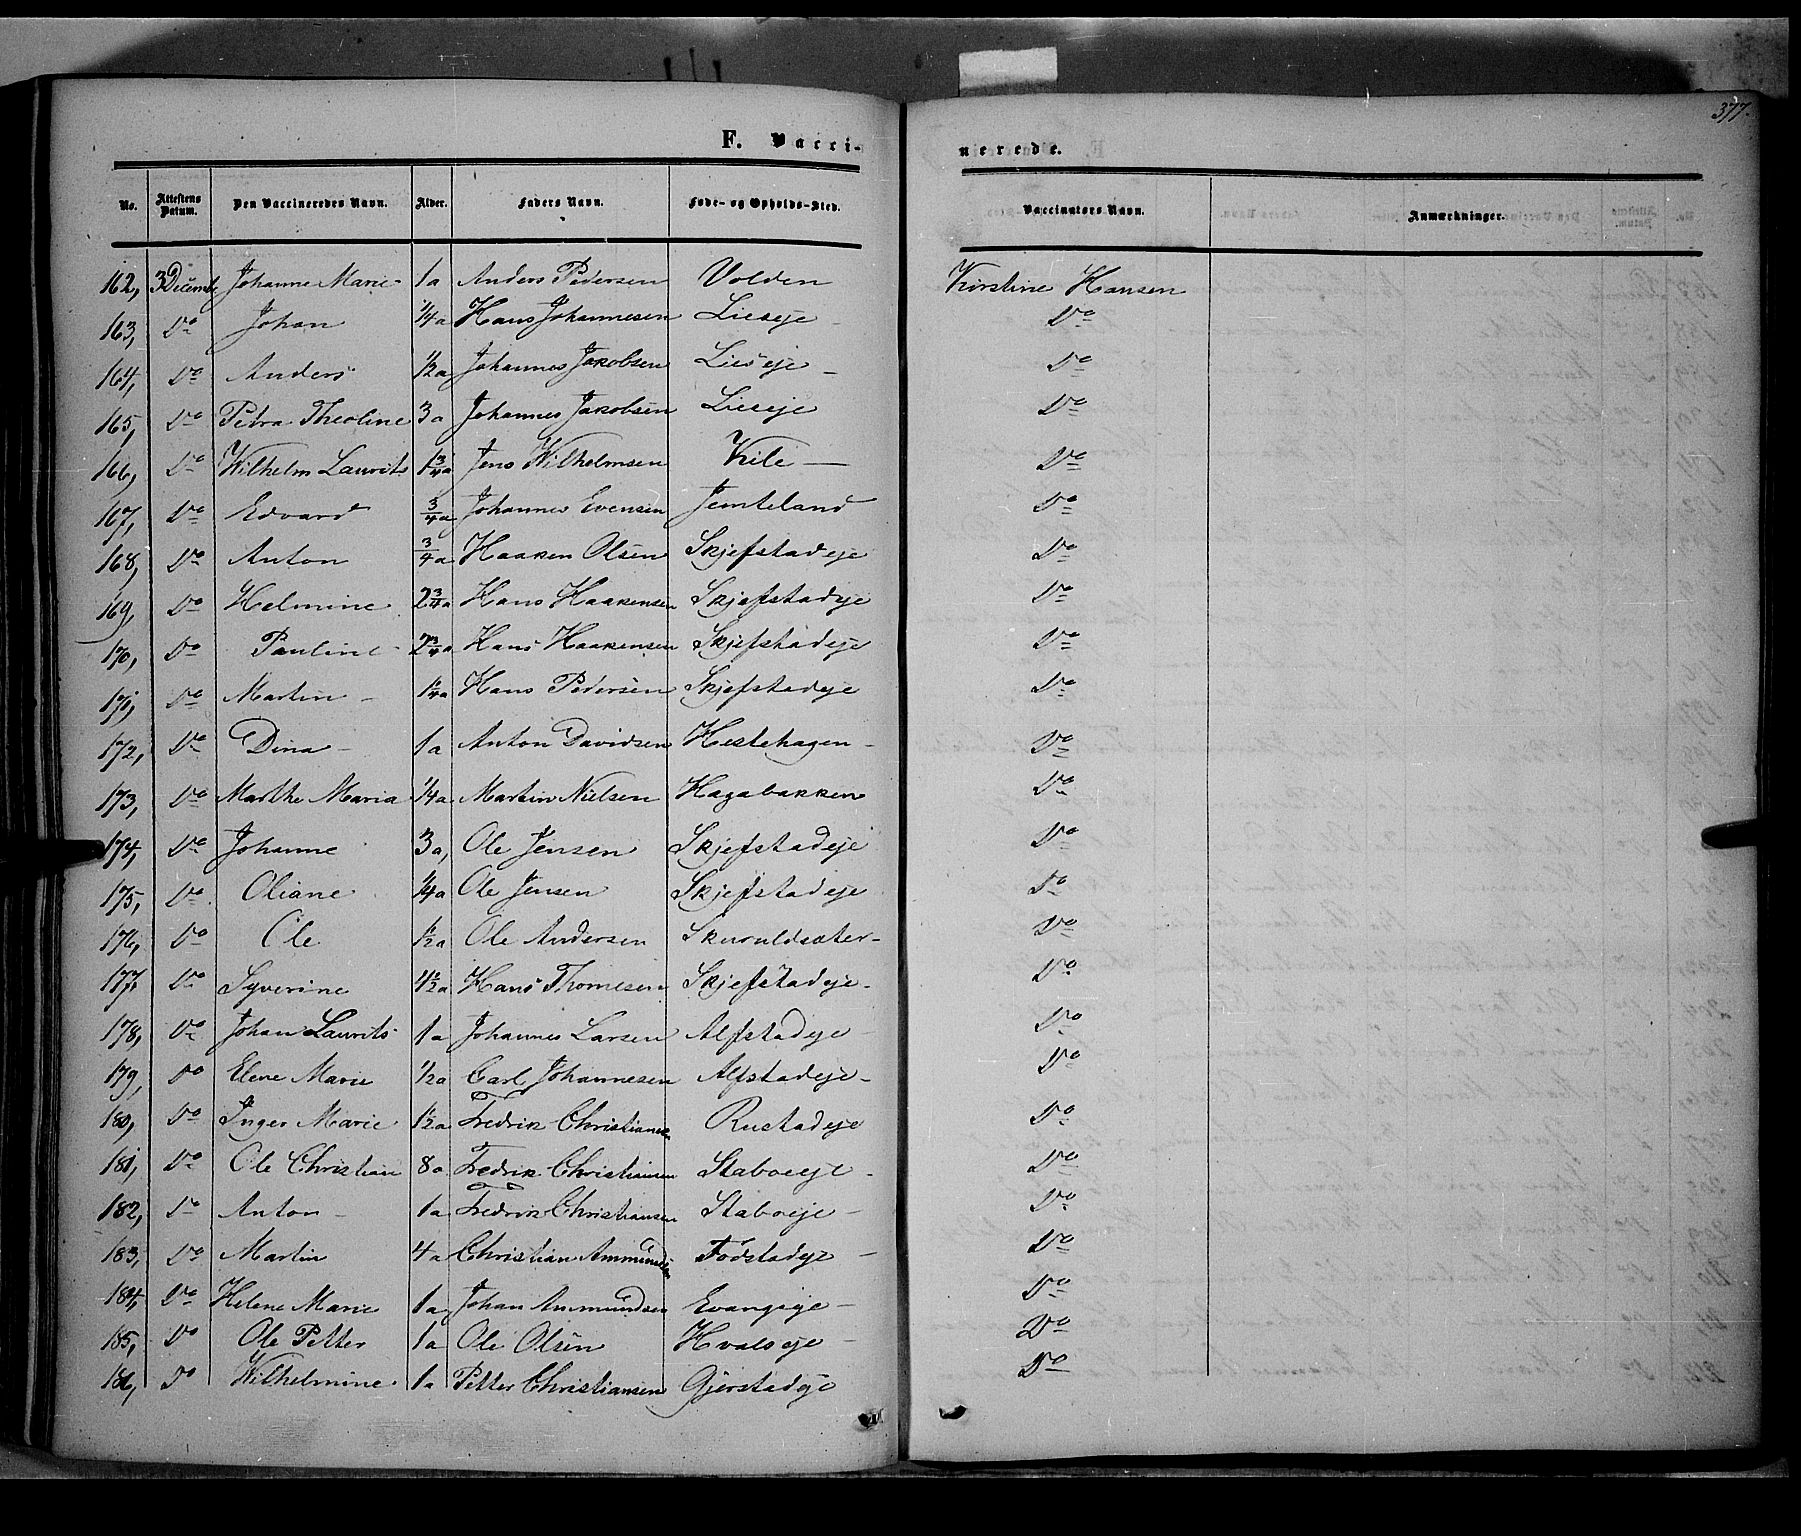 377.
F. Vacci-
nerede.
No. Attestens Datum. Den Vaccineredes Navn. Alder. Faders Navn. Føde- og Opholds-Sted. Vaccinatørs Navn. Anmærkninger.
162, 3 Decemb Johanne Marie 1a Anders Pedersen Volden Kirstine Hansen
163, Do Johan 1/4a Hans Johannesen Lieseje Do
164, Do Anders 1/2a Johannes Jakobsen Lieseje Do
165, Do Petra Theoline 3a Johannes Jakobsen Lieseje Do
166, Do Wilhelm Laurits 1 3/4a Jens Wilhelmsen Kile Do
167, Do Edvard 3/4a Johannes Evensen Jemteland Do
168, Do Anton 3/4a Haaken Olsen Skjefstadeje Do
169, Do Helmine 2 3/4a Hans Haakensen Skjefstadeje Do
170, Do Pauline 2 3/4a Hans Haakensen Skjefstadeje Do
171, Do Martin 1 1/4a Hans Pedersen Skjefstadeje Do
172, Do Dina 1a Anton Davidsen Hestehagen Do
173, Do Marthe Maria 1/4a Martin Nielsen Hagabakken Do
174, Do Johanne 3a, Ole Jensen Skjefstadeje Do
175, Do Oliane 1/4a Ole Jensen Skjefstadeje Do
176, Do Ole 1/2a Ole Andersen Skuruldsæter Do
177, Do Syverine 4 1/2a Hans Thomesen Skjefstadeje Do
178, Do Johan Laurits 1a Johannes Larsen Alfstadeje Do
179, Do Elene Marie 1/2a Carl Johannesen Alfstadeje Do
180, Do Inger Marie 1/2a Fredrik Christiansen Rustadeje Do
181, Do Ole Christian 8a Fredrik Christiansen Staboeje Do
182, Do Anton 1a Fredrik Christiansen Staboeje Do
183, Do Martin 4a Christian Ammundsen Fodstadeje Do
184, Do Helene Marie 1a Johan Ammundsen Evangeje Do
185, Do Ole Petter 1a Ole Olsen Hvalseje Do
186, Do Wilhelmine 1a Petter Christiansen Gjerstadeje Do